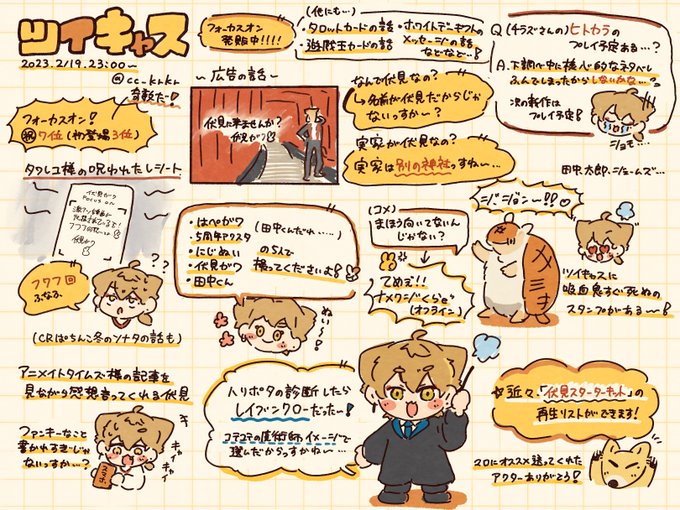 ツイキャス
2023.2/19.23:00~
@cc-knkn
奇数だ!
フォーカスオン
発販中!!!!
(他にも…)
・タロットカードの話
・遊戯王カードの話
・ホワイトデーギフトの
メッセージの話
などなど…!
Q(チラズさんの)ヒトカラの
プレイ予定ある…?
A.下調べ中に核心的なネタバレ
ふんでしまったからしないかな…?
次の新作は
プレイ予定!
ショモ…
フォーカスオン!
祝7位(初登場3位)
~広告の話~
伏見に来ませんか?
伏見ガク
なんで伏見なの?
→名前が伏見だからじゃ
ないっすか~?
実家が伏見なの?
実家は別の神社っすね…
タワレコ様の呪われたレシート
伏見ガク
Focus on
フワフワ
伏見ガク
フワフワ回
ふなふ
??
(CRぱちんこ冬のソナタの話も)
・はぺがワ
・5周年アクスタ
・にじぬい
・伏見ガク
・田中くん
(田中くんだれ……)
の5人で
撮ってくださいね!
ぬい~!
(コメ)
まほう向いてないん
じゃない?
てめぇ!!
ナメクジくらえ!
(オフライン)
田中太郎、ジョームズ…
ジョジョ~ン!!
メミョ
ツイキャスに
吸血鬼すぐ死ぬの
スタンプがある~!
アニメイトタイムズ様の記事を
見ながら感想言ってくれる伏見
ファンキーなこと
書かれすぎじゃ
ないっすか…?
スマホ
キャイ
キャイ
ハリポタの診断したら
レイブンクローだった~!
コテコテの魔術師イメージで
選んだからっすかね~
近々、「伏見スターターキット」の
再生リストができます!
スロにオススメ送ってくれた
アクターありがとう!